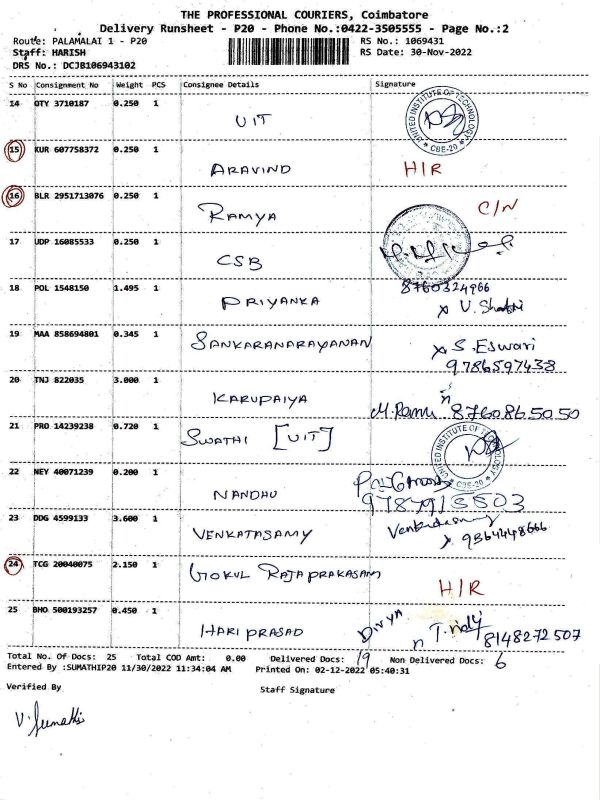 THE PROFESSIONAL COURIERS, Coimbatore
Delivery Runsheet - P20 - Phone No.:0422-3505555 - Page No.:2
Route: PALAMALAI 1 - P20 RS No.: 1069431
Staff: HARISH RS Date: 30-Nov-2022
DRS No.: DCJB106943102
S No Consignment No Weight PCS Consignee Details Signature
14 OTY 3710187 0.250 1 UIT UNITED INSTITUTE OF TECHNOLOGY CBE-20
15 KUR 607758372 0.250 1 ARAVIND H/R
16 BLR 2951713076 0.250 1 RAMYA C/N
17 UDP 16085533 0.250 1 CSB
18 POL 1548150 1.495 1 PRIYANKA 8760324966
19 MAA 858694801 0.345 1 SANKARANARAYANAN S. Eswari
9786597438
20 TNJ 822035 3.000 1 KARUPAIYA 8760865050
21 PRO 14239238 0.720 1 SWATHI [UIT] UNITED INSTITUTE OF TECHNOLOGY CBE-20
22 NEY 40071239 0.200 1 NANDHU
23 DDG 4599133 3.600 1 VENKATASAMY 9364448666
24 TCG 20040075 2.150 1 GOKUL RAJAPRAKASAM H/R
25 BMO 500193257 0.450 1 HARIPRASAD Divya 8148272507
Total No. Of Docs: 25 Total COD Amt: 0.00 Delivered Docs: 19 Non Delivered Docs: 6
Entered By :SUMATHIP20 11/30/2022 11:34:04 AM Printed On: 02-12-2022 05:40:31
Verified By Staff Signature
V. Sumathi